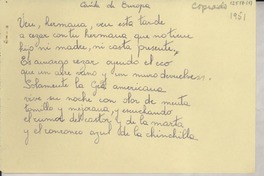 Caída de Europa
Copiado
1951
Ven, hermana, ven esta tarde
a rezar con tu hermana que no tiene
hijo ni madre, ni casta presente.
Es amargo rezar oyendo el eco
que un aire vano y un muro devuelven.
Solamente la Gea americana
vive su noche con olor de menta
tomillo y mejorana, y escuchando
el rumor del castor y de la marta
y el carreonco azul de la chinchilla